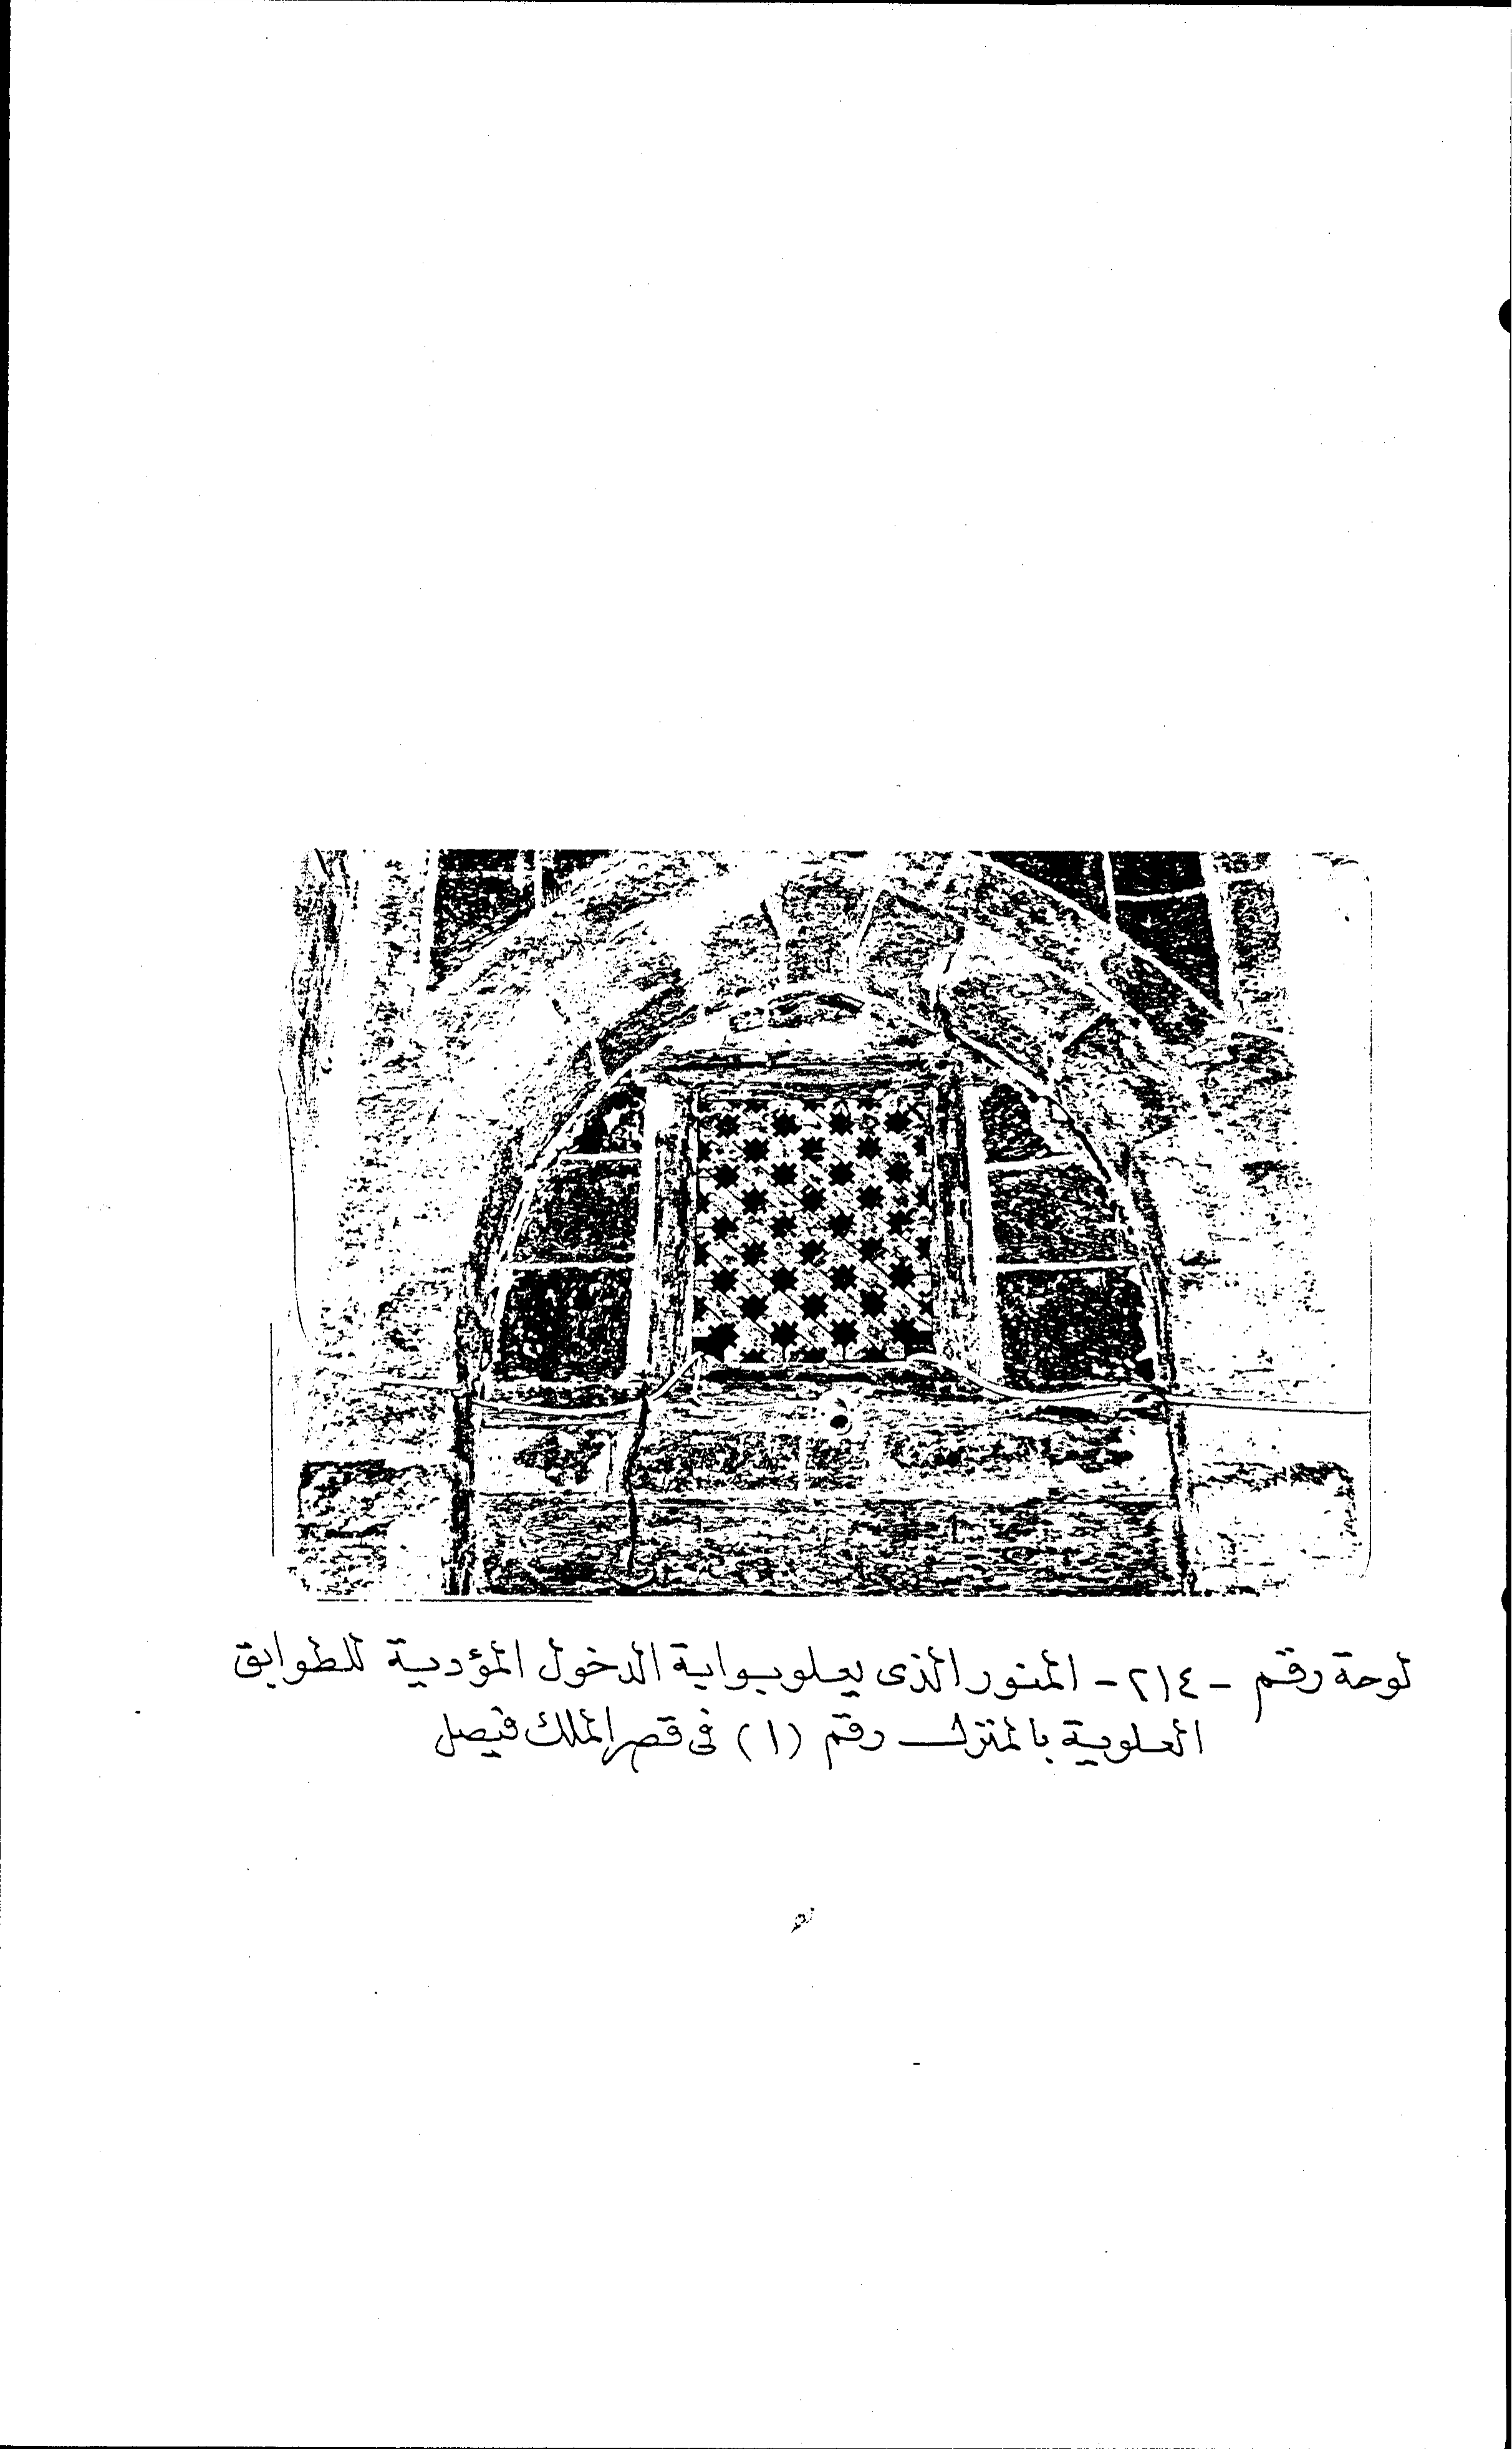 لوحة رقم - ٢١٤ - المنور الذى يعلو بوابة الدخول المؤدية للطوابق
العلوية بالمنزل رقم (١) فى قصر الملك فيصل